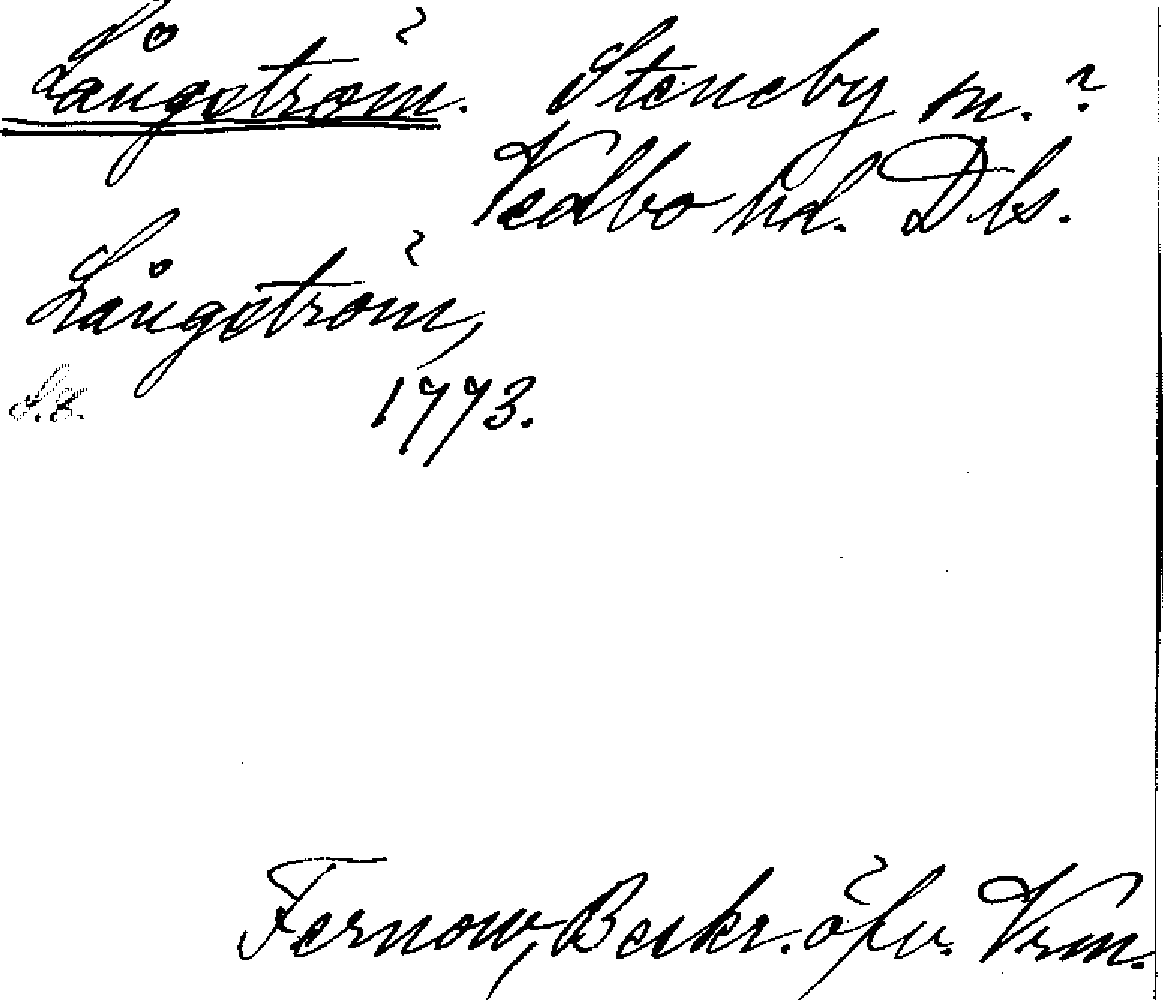 Långström. Steneby sn.?
Vedbo hd. Dls.
Långström,
1773.
Fernow, Beskr. öfv. Vrm.